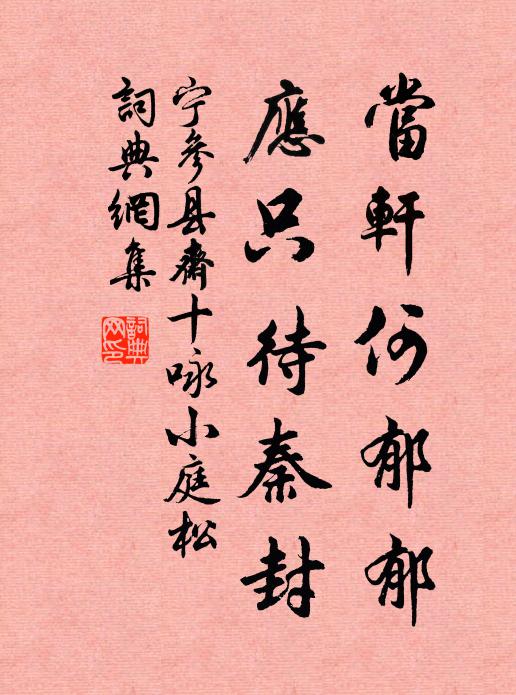 當軒何郁郁
應只待秦封
宁參县齋十咏小庭松
詞典網集
詞典網印